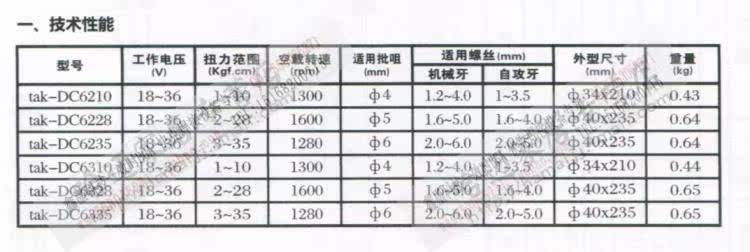 一、技术性能
型号 工作电压(V) 扭力范围(Kgf.cm) 空载转速(rpm) 适用批咀(mm) 适用螺丝(mm) 外型尺寸(mm) 重量(kg)
机械牙 自攻牙
tak-DC6210 18~36 1~10 1300 φ4 1.2~4.0 1~3.5 φ34x210 0.43
tak-DC6228 18~36 2~28 1600 φ5 1.6~5.0 1.6~4.0 φ40x235 0.64
tak-DC6235 18~36 3~35 1280 φ6 2.0~6.0 2.0~5.0 φ40x235 0.64
tak-DC6310 18~36 1~10 1300 φ4 1.2~4.0 1~3.5 φ34x210 0.44
tak-DC6328 18~36 2~28 1600 φ5 1.6~5.0 1.6~4.0 φ40x235 0.65
tak-DC6335 18~36 3~35 1280 φ6 2.0~6.0 2.0~5.0 φ40x235 0.65